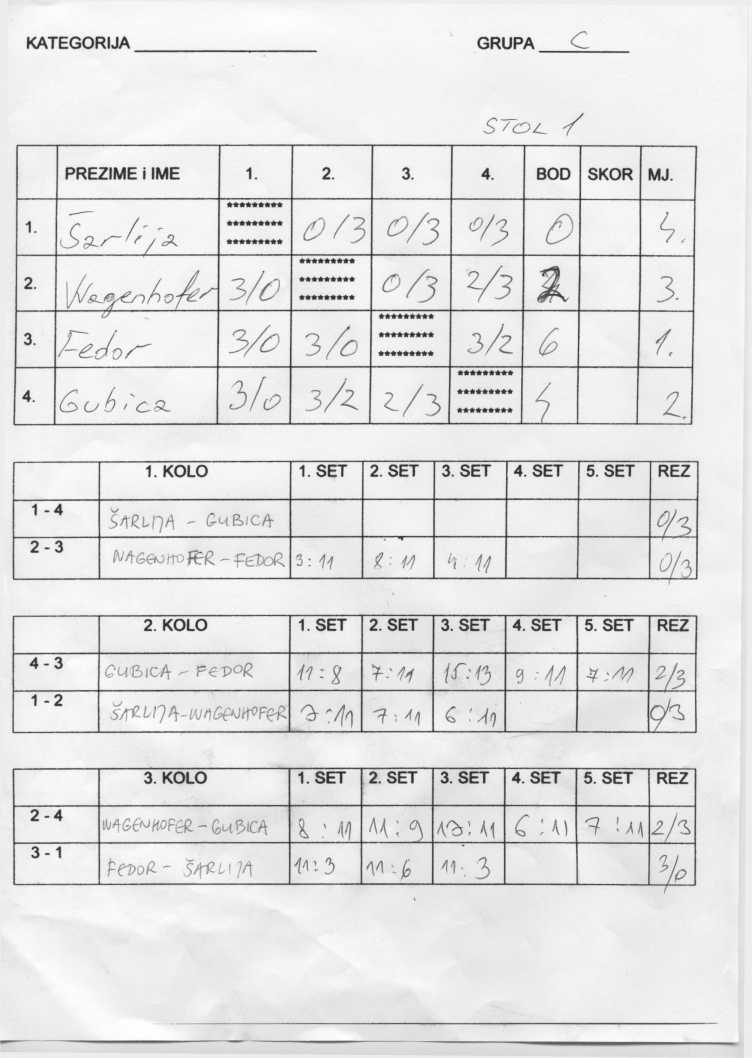 KATEGORIJA ______________ GRUPA C
STOL 1
PREZIME i IME 1. 2. 3. 4. BOD SKOR MJ.
1. Šarlija ********* 0/3 0/3 0/3 0 4.
2. Wagenhofer 3/0 ********* 0/3 2/3 2 3.
3. Fedor 3/0 3/0 ********* 3/2 6 1.
4. Gubica 3/0 3/2 2/3 ********* 4 2.
1. KOLO 1. SET 2. SET 3. SET 4. SET 5. SET REZ
1 - 4 ŠARLIJA - GUBICA 0/3
2 - 3 WAGENHOFER - FEDOR 3:11 8:11 4:11 0/3
2. KOLO 1. SET 2. SET 3. SET 4. SET 5. SET REZ
4 - 3 GUBICA - FEDOR 11:8 7:11 15:13 9:11 7:11 2/3
1 - 2 ŠARLIJA-WAGENHOFER 7:11 7:11 6:11 0/3
3. KOLO 1. SET 2. SET 3. SET 4. SET 5. SET REZ
2 - 4 WAGENHOFER - GUBICA 8:11 11:9 6:11 7:11 2/3
3 - 1 FEDOR - ŠARLIJA 11:3 11:6 11:3 3/0